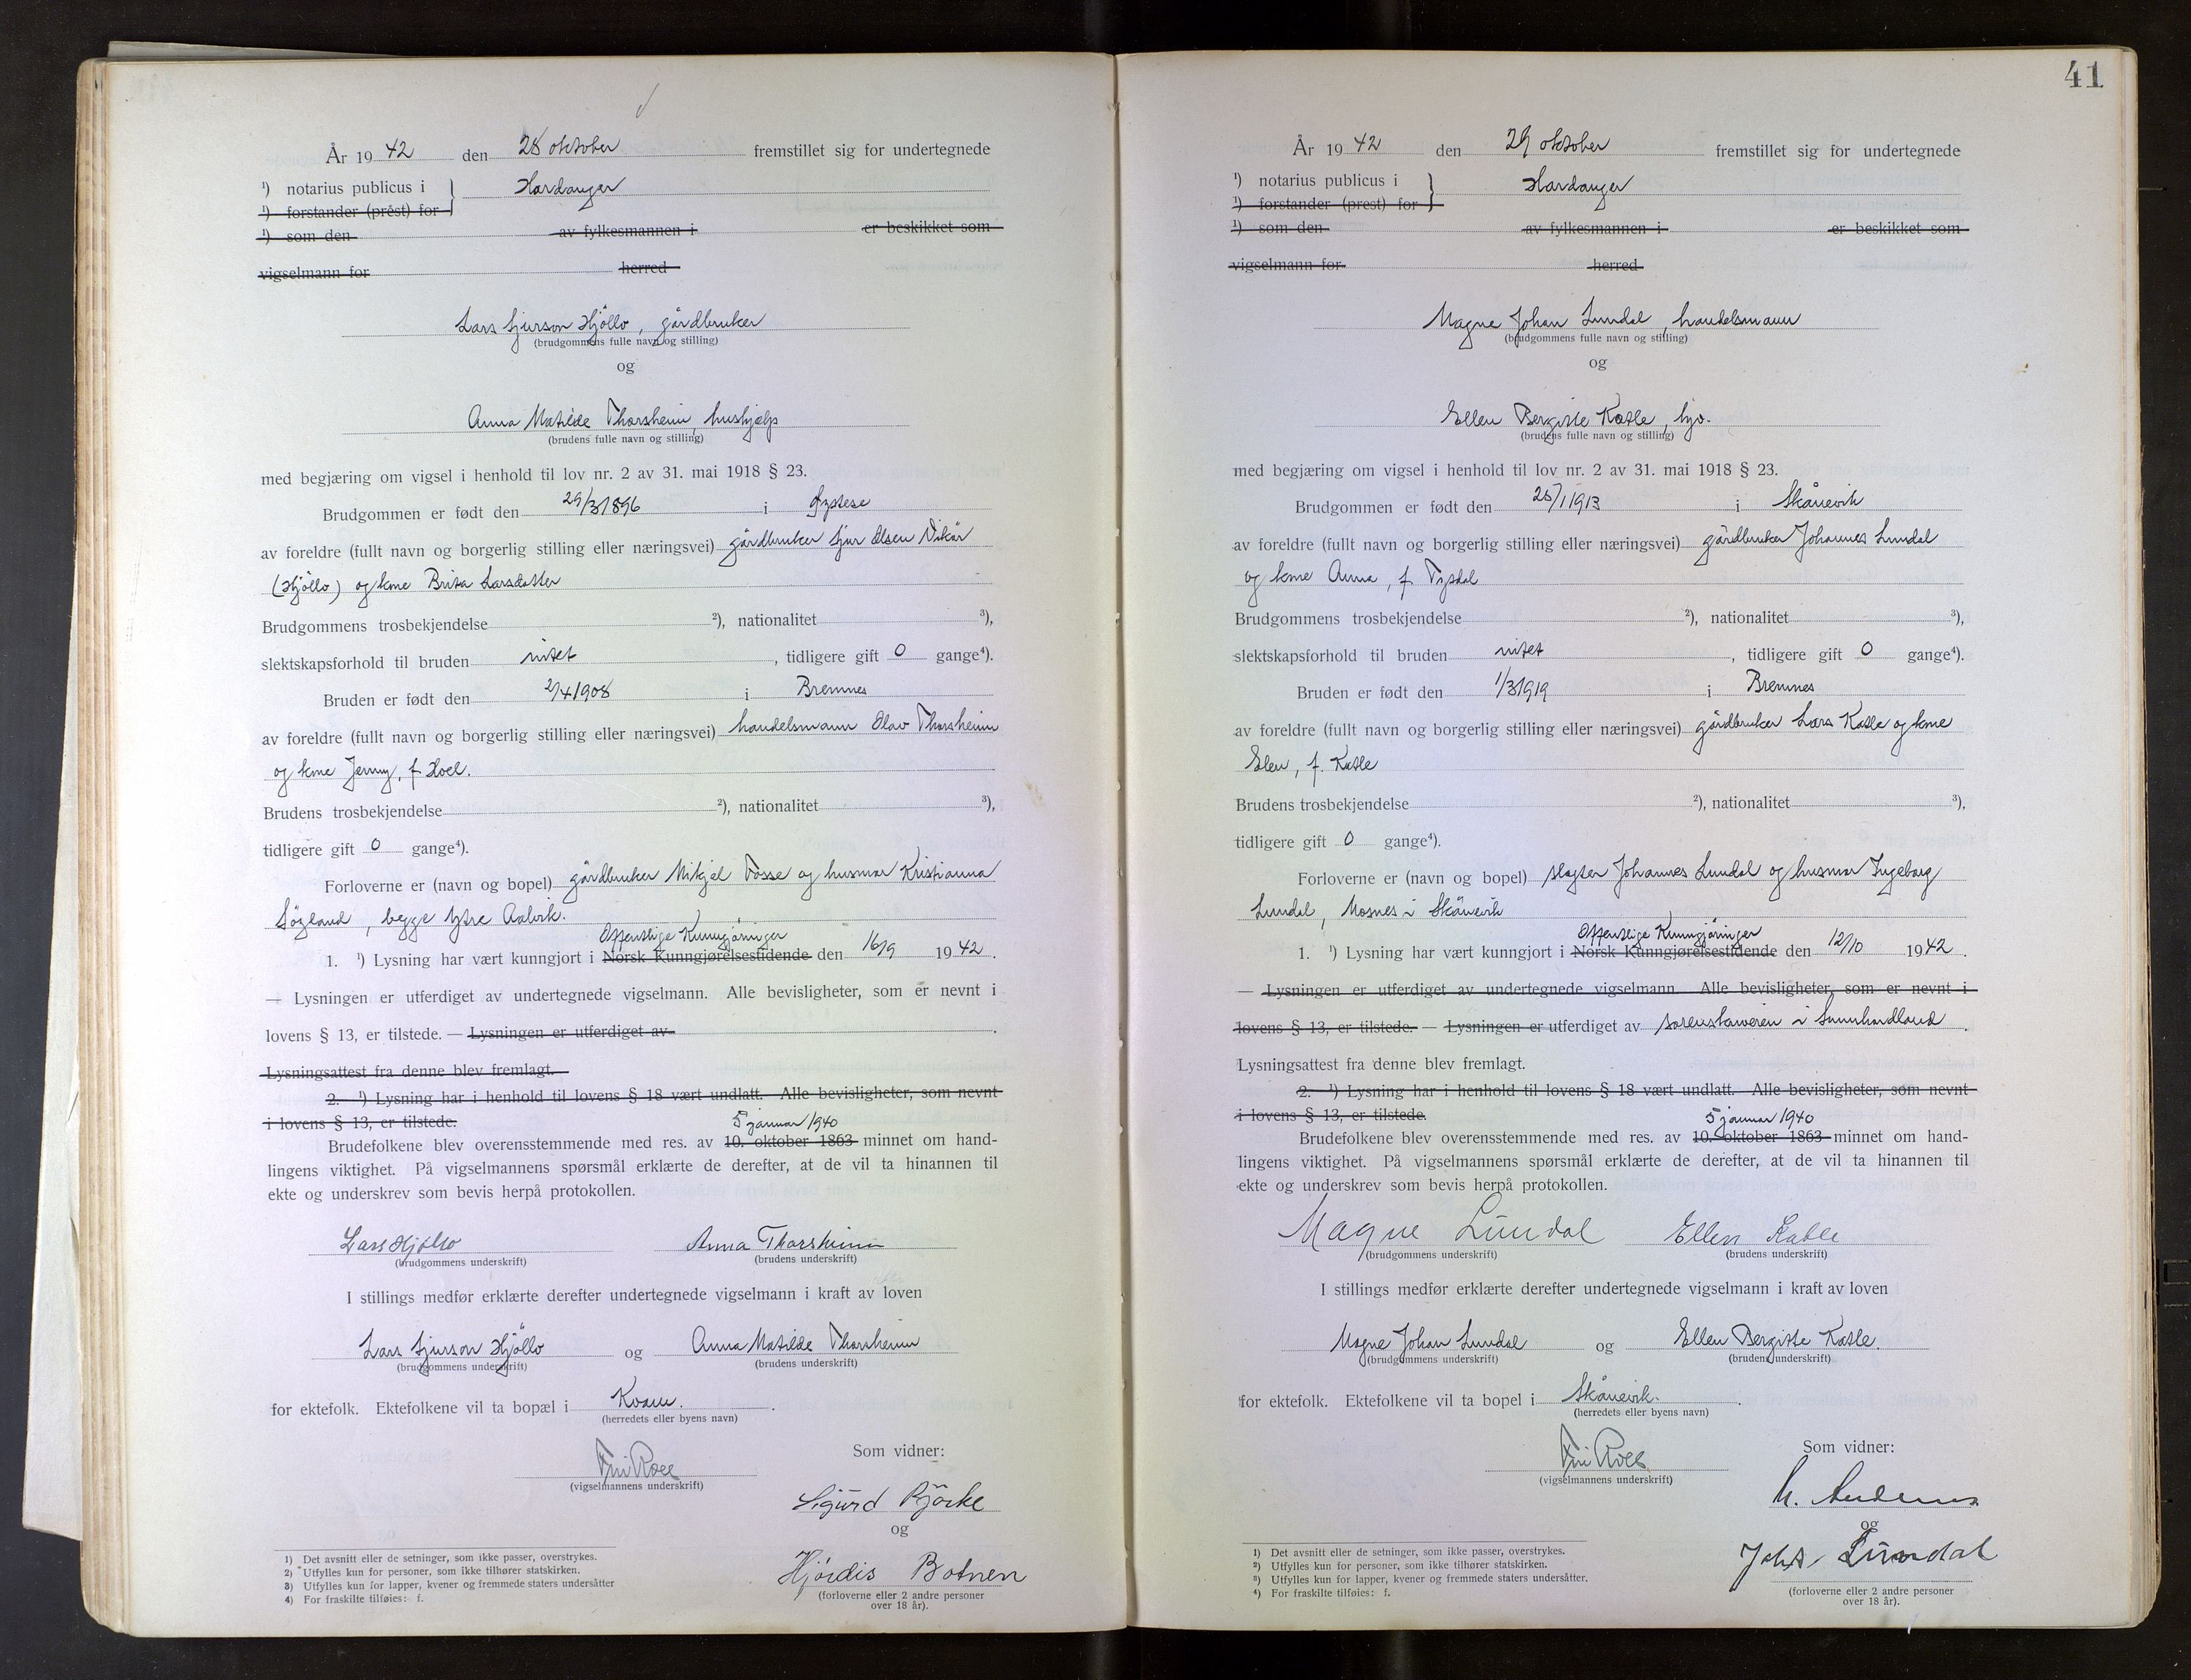 År 1942 den 28 oktober fremstillet sig for undertegnede
¹) notarius publicus i } Hardanger
¹) forstander (prest) for
¹) som den av fylkesmannen i er beskikket som
vigselmann for herred
Lars Sjurson Hjøllo, gårdbruker
(brudgommens fulle navn og stilling)
og
Anna Matilde Thorsheim, hushjelp
(brudens fulle navn og stilling)
med begjæring om vigsel i henhold til lov nr. 2 av 31. mai 1918 § 23.
Brudgommen er født den 29/3 1896 i Øystese
av foreldre (fullt navn og borgerlig stilling eller næringsvei) gårdbruker Sjur Olsen Vikør
(Hjøllo) og kone Brita Larsdatter
Brudgommens trosbekjendelse ²), nationalitet ³),
slektskapsforhold til bruden intet, tidligere gift 0 gange⁴).
Bruden er født den 2/4 1908 i Bremnes
av foreldre (fullt navn og borgerlig stilling eller næringsvei) handelsmann Olav Thorsheim
og kone Jenny, f. Hoel.
Brudens trosbekjendelse ²), nationalitet ³),
tidligere gift 0 gange⁴).
Forloverne er (navn og bopel) gårdbruker Mikjel Fosse og husmor Kristianna
, begge Ytre Aalvik.
Offentlige Kunngjøringer
1. ¹) Lysning har vært kunngjort i Norsk Kunngjørelsestidende den 16/9 1942.
— Lysningen er utferdiget av undertegnede vigselmann. Alle bevisligheter, som er nevnt i
lovens § 13, er tilstede. — Lysningen er utferdiget av .
Lysningsattest fra denne blev fremlagt.
2. ¹) Lysning har i henhold til lovens § 18 vært undlatt. Alle bevisligheter, som nevnt
i lovens § 13, er tilstede.
5 januar 1940
Brudefolkene blev overensstemmende med res. av 10. oktober 1863 minnet om hand-
lingens viktighet. På vigselmannens spørsmål erklærte de derefter, at de vil ta hinannen til
ekte og underskrev som bevis herpå protokollen.
Lars Hjøllo Anna Thorsheim
(brudgommens underskrift) (brudens underskrift)
I stillings medfør erklærte derefter undertegnede vigselmann i kraft av loven
Lars Sjurson Hjøllo og Anna Matilde Thorsheim
(brudgommens underskrift) (brudens underskrift)
for ektefolk. Ektefolkene vil ta bopæl i Kvam.
(herredets eller byens navn)
Som vidner:
(vigselmannens underskrift)
Sigurd Bjørke
og
Hjørdis Botnen
(forloverne eller 2 andre personer
over 18 år).
1) Det avsnitt eller de setninger, som ikke passer, overstrykes.
2) Utfylles kun for personer, som ikke tilhører statskirken.
3) Utfylles kun for lapper, kvener og fremmede staters undersåtter
4) For fraskilte tilføies: f.
41
År 1942 den 29 oktober fremstillet sig for undertegnede
¹) notarius publicus i } Hardanger
¹) forstander (prest) for
¹) som den av fylkesmannen i er beskikket som
vigselmann for herred
Magne Johan Lundal, handelsmann
(brudgommens fulle navn og stilling)
og
Ellen Bergitte Katle, hjv.
(brudens fulle navn og stilling)
med begjæring om vigsel i henhold til lov nr. 2 av 31. mai 1918 § 23.
Brudgommen er født den 25/1 1913 i Skånevik
av foreldre (fullt navn og borgerlig stilling eller næringsvei) gårdbruker Johannes Lundal
og kone Anna, f. Tysdal
Brudgommens trosbekjendelse ²), nationalitet ³),
slektskapsforhold til bruden intet, tidligere gift 0 gange⁴).
Bruden er født den 1/3 1919 i Bremnes
av foreldre (fullt navn og borgerlig stilling eller næringsvei) gårdbruker Lars Katle og kone
Elen, f. Katle
Brudens trosbekjendelse ²), nationalitet ³),
tidligere gift 0 gange⁴).
Forloverne er (navn og bopel) slagter Johannes Lundal og husmor Ingeborg
Lundal, Mosnes i Skånevik
Offentlige Kunngjøringer
1. ¹) Lysning har vært kunngjort i Norsk Kunngjørelsestidende den 12/10 1942.
— Lysningen er utferdiget av undertegnede vigselmann. Alle bevisligheter, som er nevnt i
lovens § 13, er tilstede. — Lysningen er utferdiget av sorenskriveren i Sunnhordland.
Lysningsattest fra denne blev fremlagt.
2. ¹) Lysning har i henhold til lovens § 18 vært undlatt. Alle bevisligheter, som nevnt
i lovens § 13, er tilstede.
5 januar 1940
Brudefolkene blev overensstemmende med res. av 10. oktober 1863 minnet om hand-
lingens viktighet. På vigselmannens spørsmål erklærte de derefter, at de vil ta hinannen til
ekte og underskrev som bevis herpå protokollen.
Magne Lundal Ellen Katle
(brudgommens underskrift) (brudens underskrift)
I stillings medfør erklærte derefter undertegnede vigselmann i kraft av loven
Magne Johan Lundal og Ellen Bergitte Katle.
(brudgommens underskrift) (brudens underskrift)
for ektefolk. Ektefolkene vil ta bopel i Skånevik.
(herredets eller byens navn)
Som vidner:
(vigselmannens underskrift)
og
Johs. Lundal
(forloverne eller 2 andre personer
over 18 år).
1) Det avsnitt eller de setninger, som ikke passer, overstrykes.
2) Utfylles kun for personer, som ikke tilhører statskirken.
3) Utfylles kun for lapper, kvener og fremmede staters undersåtter.
4) For fraskilte tilføies: f.